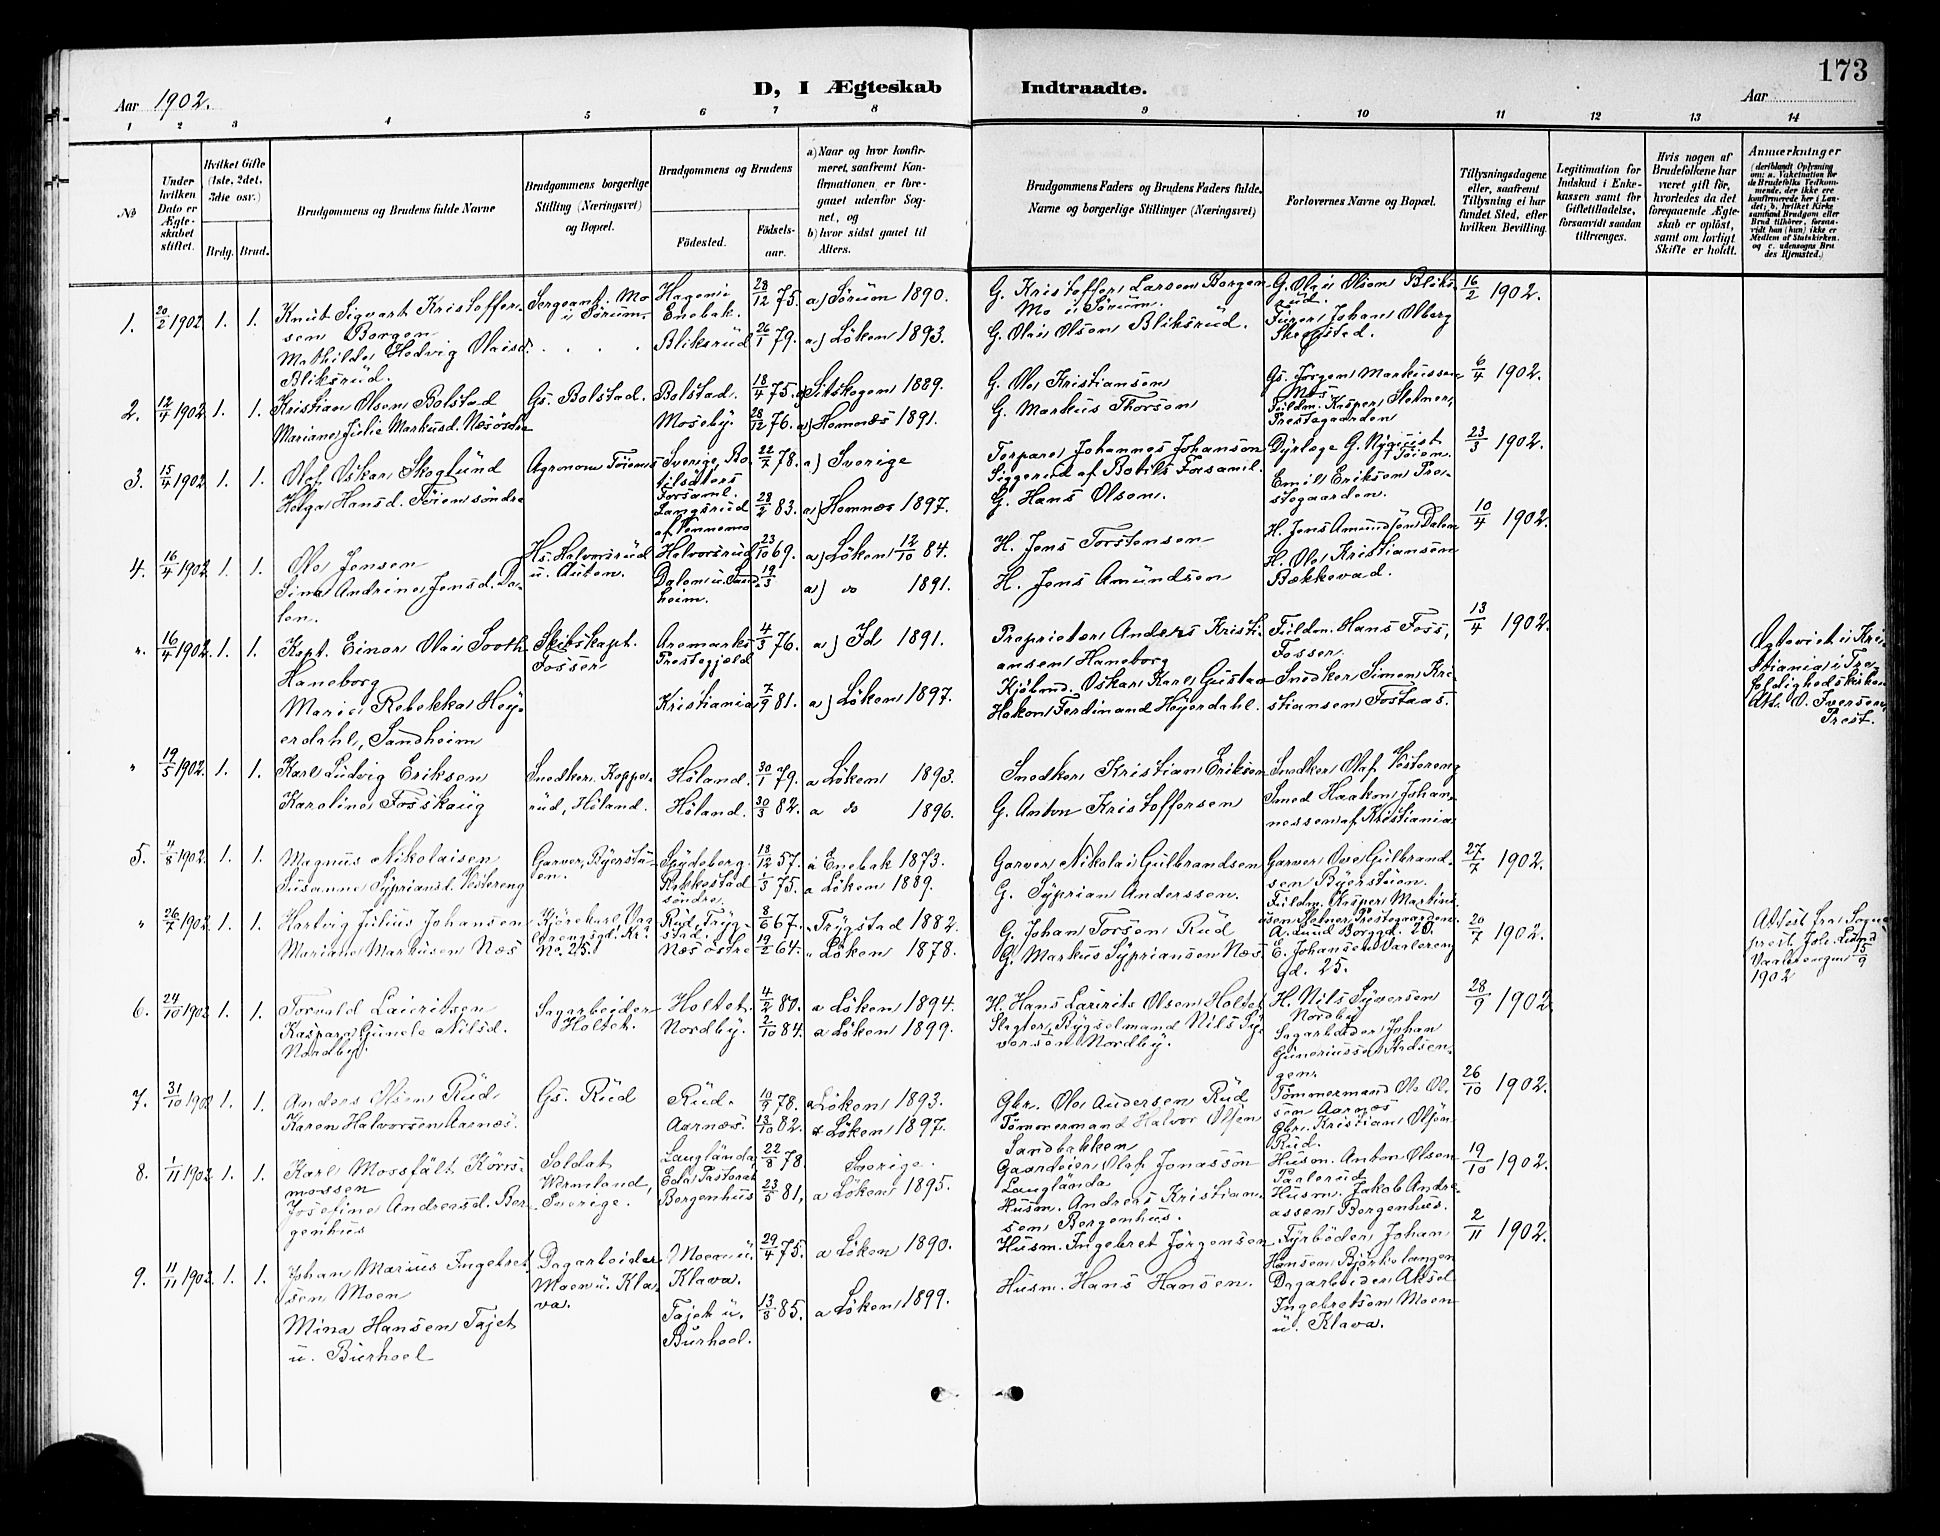 173
Aar 1902.
D, I Ægteskab Indtraadte.
Aar
1 2 3 4 5 6 7 8 9 10 11 12 13 14
No
Under hvilken Dato er Ægteskabet stiftet.
Hvilket Gifte (1ste, 2det, 3die osv.)
Brdg. Brud.
Brudgommens og Brudens fulde Navne
Brudgommens borgerlige Stilling (Næringsvei) og Bopæl.
Brudgommens og Brudens
Fødested. Fødselsaar.
a) Naar og hvor konfirmeret, saafremt Konfirmationen er foregaaet udenfor Sognet, og
b) hvor sidst gaaet til Alters.
Brudgommens Faders og Brudens Faders fulde Navne og borgerlige Stillinger (Næringsvei)
Forlovernes Navne og Bopæl.
Tillysningsdagene eller, saafremt Tillysning ei har fundet Sted, efter hvilken Bevilling.
Legitimation for Indskud i Enkekassen samt for Giftetilladelse, forsaavidt saadan tiltrænges.
Hvis nogen af Brudefolkene har været gift før, hvorledes da det foregaaende Ægteskab er opløst, samt om lovligt Skifte er holdt.
Anmærkninger
(deriblandt Oplysning om: a. Vakcination for de Brudefolks Vedkommende, der ikke ere konfirmerede her i Landet; b. hvilket Kirkesamfund Brudgom eller Brud tilhører, forsaavidt han (hun) ikke er Medlem af Statskirken, og c. udensogns Brudes Hjemsted.)
1. 20/2 1902 1. 1. Knut Sigvart Kristoffersen Borgen Sergeant. Mo i Sørum. Hagen i Enebak. 28/12 75. a) Sørum 1890. G. Kristoffer Larsen Borgen Mo i Sørum. G. Olai Olsen Bliksrud. 16/2 1902.
Mathilde Hedvig Olaisd. Bliksrud. Bliksrud 26/1 79. a) Løken 1893. G. Olai Olsen Bliksrud. Furer Johan Olberg Skregsted.
2. 12/4 1902 1. 1. Kristian Olsen Bolstad Gs. Bolstad. Bolstad. 18/4 75. a) Sitskogen 1889. G. Ole Kristiansen Gs. Jørgen Markussen Mos 6/4 1902.
Mariane Julie Markusd. Næsøstre Moseby. 28/12 76. a) Hemnæs 1891. G. Markus Thorsen Fuldm. Kasper Sletner, Prestegaarden
3. 15/4 1902 1. 1. Olof Oskar Skoglund Agronom Tøiens Sverige, Botilsäters Forsaml. 22/7 78. a) Sverige Torpare Johannes Johanson Siggerud af Botils Forsamil. Dyrlæge G. Nyquist Tøien. 23/3 1902.
Helga Hansd. Tøien søndre Langsrud af Hemnes 28/2 83. a) Hemnæs 1897. G. Hans Olsen. Emil Eriksen Prestegaarden.
4. 16/4 1902 1. 1. Ole Jensen Hs. Halvorsrud u. Auten. Halvorsrud 23/10 69. a) Løken 12/10 84. H. Jens Torstensen H. Jens Amundsen Dalen 10/4 1902.
Sina Andrine Jensd. Dalen. Dalen u. Sandheim. 19/3 a) do 1891. H. Jens Amundsen H. Ole Kristiansen Bækkevad.
". 16/4 1902. 1. 1. Kapt. Einar Olai Tooth Haneborg Skibskapt. Fosser Aremarks Prestegjeld 4/3 76. a) Id 1891. Proprietær Anders Kristiansen Haneborg Fuldm. Hans Foss, Fosser 13/4 1902.
Marie Rebekka Heyerdahl, Sandheim Kristiania 7/9 81. a) Løken 1897. Kjøbmd. Oskar Karl Gustav Hakon Ferdinand Heyerdahl. Snedker Simen Kristiansen Tostaas.
Ægteviet i Kristiania i Trefoldighedskirken Att. O. Iversen, Prest.
" 19/5 1902. 1. 1. Karl Ludvig Eriksen Snedker. Kopperud, Høland. Høland. 30/1 79. a Løken 1893. Snedker Kristian Eriksen Snedker Olaf Vestereng
Karoline Fosshaug Høland. 30/3 82. a do 1896. G. Anton Kristoffersen Smed Haakon Johannessen af Kristiania
5. 4/8 1902. 1. 1. Magnus Nikolaisen Garver, Byerstuen. Spydeberg. 18/12 57. a Enebak 1873. Garver Nikolai Gulbrandsen Garver Ove Gulbrandsen Byerstuen. 27/7 1902.
Susanne Syprianst. Vestereng Rakkestad søndre. 1/3 75. a Løken 1889. G. Syprian Anderssen. Fuldm. Kasper Martiniusen Sletner, Prestegaarden.
" 26/7 1902. 1. 1. Hartvig Julius Johansen Kjørekarl, No. 25. Rud, Trygstad. 8/6 67. " Trygstad 1882. G. Johan Torsen Rud A. Lund Borggd. 20. 20/7 1902.
Mariane Markusen Næs Næs østre 19/2 64. " Løken 1878. G. Markus Syprianssen Næs. E. Johansen Vaalereng gd. 25.
Attest fra Sogneprest Joh. Lund Vaalerengen 15/9 1902
6. 24/10 1902 1. 1. Torvald Lauritsen Sagarbeider Holtet. Holtet. 4/2 80. a Løken 1894. H. Hans Laurits Olsen Holtet H. Nils Syversen Nordby 28/9 1902
Kaspara Gunele Nilsd. Nordby. Nordby. 2/10 84. a Løken 1899. Slagter, Bygselmand Nils Syversen Nordby. Sagarbeider Johan Gunerius­sen Stadsengen.
7. 31/10 1902 1. 1. Anders Olsen Rud. Gs. Rud Rud. 10/9 78. a Løken 1893. Gbr. Ole Andersen Rud Tømmermand Ole Olsen Aarnæs 26/10 1902.
Karen Halvorsen Aarnæs. Aarnæs. 13/10 82. a Løken 1897. Tømmermand Halvor Olsen Sandbakken Gbr. Kristian Olsen Rud.
8. 1/11 1902 1. 1. Karl Mossfält Körnsmossen Soldat Wermeland, Sverige. Lauglände, Eda Pastorat 22/8 78. Sverige. Gaardeier Olaf Jonasson Lauglända Husm. Anton Olsen Paalerud 19/10 1902.
Josefine Andreasd. Bergenhus Bergenhus 23/5 81, a Løken 1895. Husm. Andreas Kristiansen Bergenhus. Husm. Jakob Andreassen Bergenhus.
9. 11/11 1902. 1. 1. Johan Marius Ingebretsen Moen Dagarbeider Moen u. Klava. Moen u. Klava. 29/4 75. a Løken 1890. Husm. Ingebret Jørgensen Fyrbøder Johan Hansen Bjørkelangen 2/11 1902.
Mina Hansen Tajet u. Burhoel Tajet u. Burhoel. 13/3 85. a Løken 1899. Husm. Hans Hansen. Dagarbeider Aksel Ingebretsen Moen u. Klava.